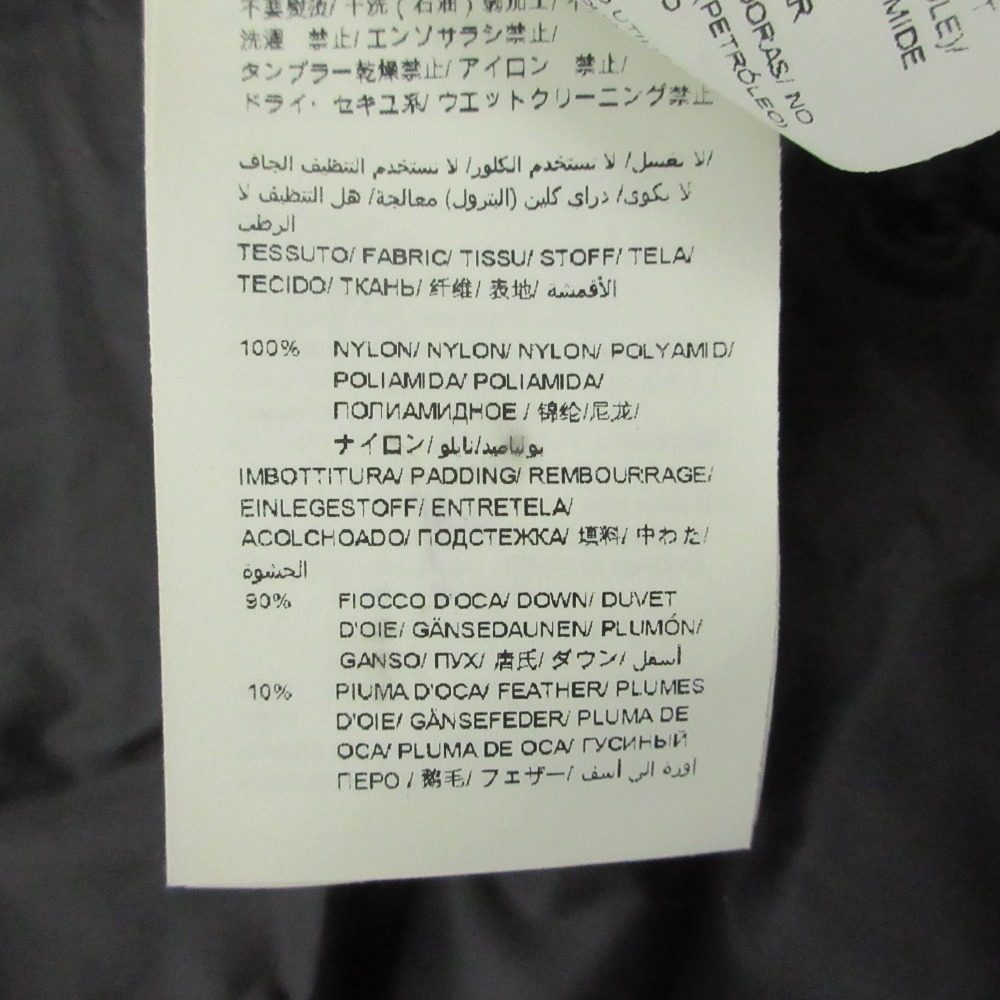 不要熨烫/ 干洗 (石油) 弱加工/
洗濯 禁止/ エンソサラシ禁止/
タンブラー乾燥禁止/ アイロン 禁止/
ドライ・セキユ系/ ウエットクリーニング禁止
لا تغسل/ لا تستخدم الكلور/ لا تستخدم التنظيف الجاف/
لا تكوى/ دراي كلين (البترول) معالجة/ هل التنظيف لا
الرطب
TESSUTO/ FABRIC/ TISSU/ STOFF/ TELA/
TECIDO/ ТКАНЬ/ 纤维/ 表地/ الأقمشة
100% NYLON/ NYLON/ NYLON/ POLYAMID/
POLIAMIDA/ POLIAMIDA/
ПОЛИАМИДНОЕ / 锦纶/尼龙/
ナイロン/ بولياميد/نايلو
IMBOTTITURA/ PADDING/ REMBOURRAGE/
EINLEGESTOFF/ ENTRETELA/
ACOLCHOADO/ ПОДСТЕЖКА/ 填料/ 中わた/
الحشوة
90% FIOCCO D'OCA/ DOWN/ DUVET
D'OIE/ GÄNSEDAUNEN/ PLUMÓN/
GANSO/ ПУХ/ 唐氏/ ダウン/ أسفل
10% PIUMA D'OCA/ FEATHER/ PLUMES
D'OIE/ GÄNSEFEDER/ PLUMA DE
OCA/ PLUMA DE OCA/ ГУСИНЫЙ
ПЕРО / 鹅毛/ フェザー/ اورة الى أسف
DORAS/ NO
(PETRÓLEO)